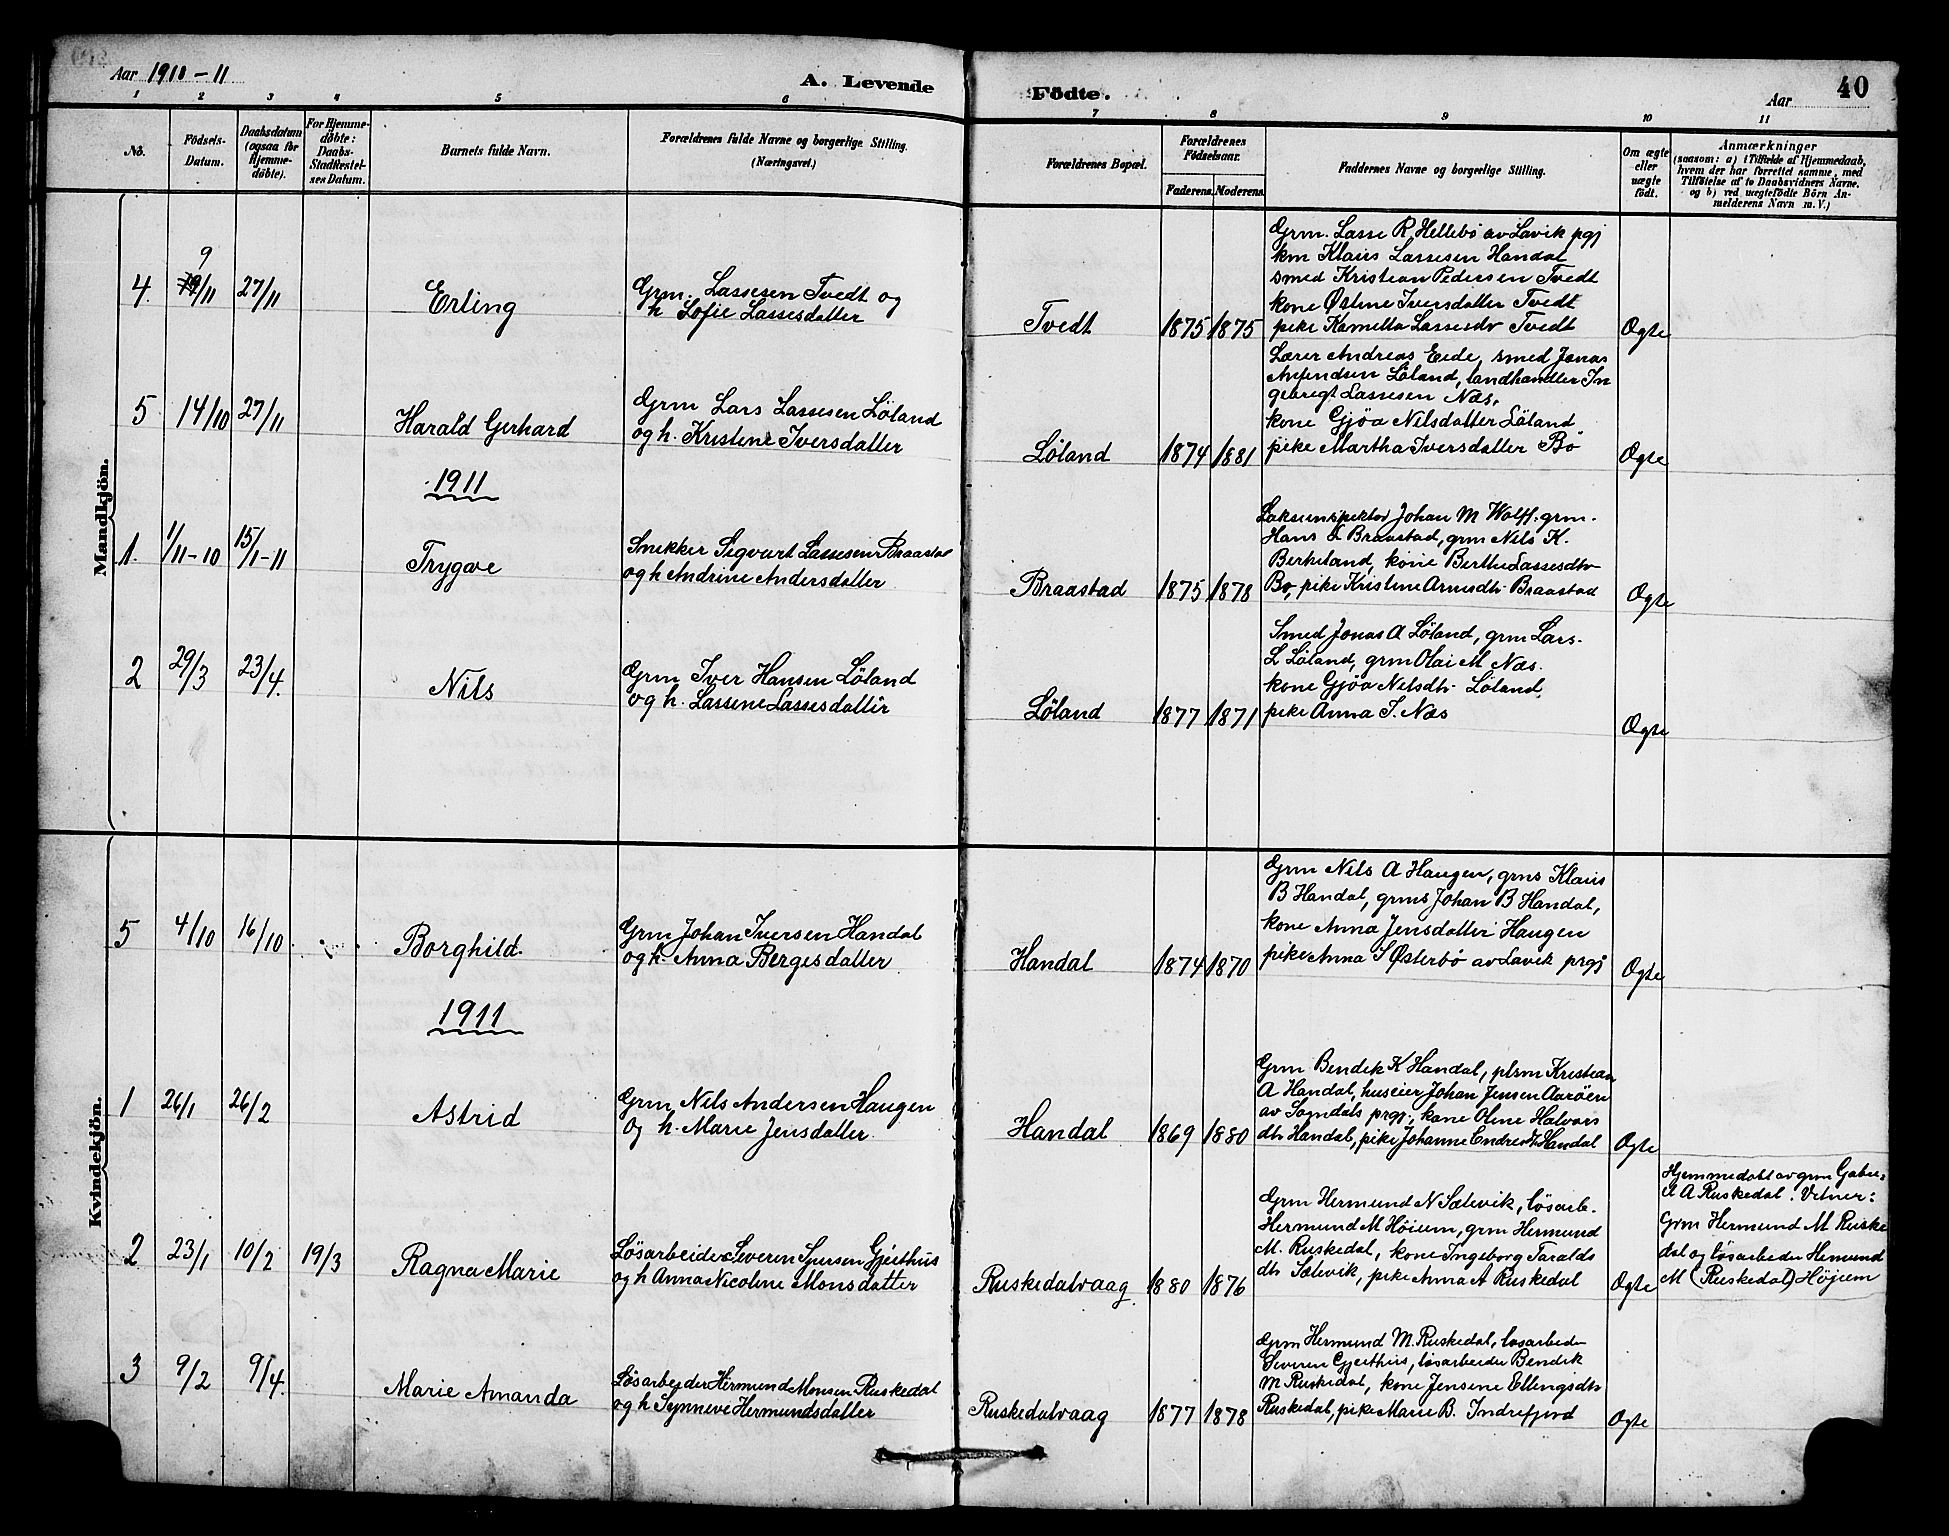 Aar 1910-11
A. Levende
Födte.
Aar
40
1 2 3 4 5 6 7 8 9 10 11
No.
Födsels-
Datum.
Daabsdatum
(ogsaa for
Hjemme-
döbte).
For Hjemme-
döbte:
Daabs-
Stadfæstel-
ses Datum.
Barnets fulde Navn.
Forældrenes fulde Navne og borgerlige Stilling.
(Næringsvei.)
Forældrenes Bopæl.
Forældrenes
Födselsaar.
Faderens. Moderens.
Faddernes Navne og borgerlige Stilling.
Om ægte
eller
uægte
födt.
Anmærkninger
(saasom: a) i Tilfælde af Hjemmedaab,
hvem der har forrettet samme, med
Tilföielse af to Daabsvidners Navne,
og b) ved uægtefödte Börn An-
melderens Navn m. V.)
Mandkjön.
4. 9/11 27/11 Erling
Grm. Lassesen Tvedt og
h. Sofie Lassesdatter
Tvedt 1875 1875
Grm. Lasse R. Hellebø av Lavik pgj
km Klaus Lassesen Handal
smed Kristian Pedersen Tvedt
kone Østine Iversdatter Tvedt
pike Kamilla Lassesdr Tvedt
Ægte
5 14/10 27/11 Harald Gerhard
Grm Lars Lassesen Løland
og h. Kristine Iversdatter
Løland 1874 1881
Lærer Andreas Eide, smed Jonas
Anfindsen Løland, landhandler In
gebregt Lassesen Næs,
kone Gjøa Nilsdatter Løland
pike Martha Iversdatter Bø
Ægte
1911
1. 1/11-10 15/1-11 Trygve
Snekker Sigvart Lassesen Braastad
og h Andrine Andersdatter
Braastad 1875 1878
Lakseinspektør Johan M Wolff. grm.
Hans L Braastad, grm Nils K.
Berkeland, kone Berthe Lassesdtr
Bø, pike Kristine Arnesdtr Braastad
Ægte
2 29/3 23/4. Nils
Grm Iver Hansen Løland
og h. Lassene Lassesdatter
Løland 1877 1871
Smed Jonas A Løland, grm Lars.
L Løland, grm Olai M Næs.
kone Gjøa Nilsdtr Løland,
pike Anna I. Næs
Ægte
Kvindekjön.
5 4/10 16/10 Borghild.
Grm Johan Iversen Handal
og h. Anna Bergesdatter
Handal 1874 1870
Grm Nils A Haugen, grms Klaus
B Handal, grms Johan B Handal,
kone Anna Jensdatter Haugen
pike Anna S Østerbø av Lavik prgj
Ægte
1911
1 26/1 26/2 Astrid
Grm Nils Andersen Haugen
og h. Marie Jensdatter
Handal 1869 1880
Grm Bendik K Handal, plsm Kristian
A Handal, huseier Johan Jensen Aarøen
av Sogndals prgj., kone Oline Halvors
dtr Handal, pike Johanne Endresdtr Handal
Ægte
2 23/1 10/2 19/3 Ragna Marie
Løsarbeider Severin Sjursen Gjeithus
og h Anna Nicoline Monsdatter
Ruskedalvaag. 1880 1876
Grm Hermund N Sælevik, løsarb.
Hermund M Höiem, grm Hermund
M. Ruskedal, kone Ingeborg Taralds
dtr Sælevik, pike Anna A Ruskedal
Ægte
Hjemmedøbt av grm Gabri-
el A Ruskedal. Vitner:
Grm Hermund M Ruske
dal og løsarbeider Hermund
M (Ruskedal) Højem
3 9/2 9/4. Marie Amanda
Løsarbeider Hermund Monsen Ruskedal
og h Synneve Hermundsdatter
Ruskedalvaag 1877 1878
Grm Hermund M. Ruskedal, løsarbeider
Severin Gjeithus, løsarbeider Bendik
M Ruskedal, kone Jensine Ellingsdtr
Ruskedal, pike Marie B. Indrefjord
Ægte